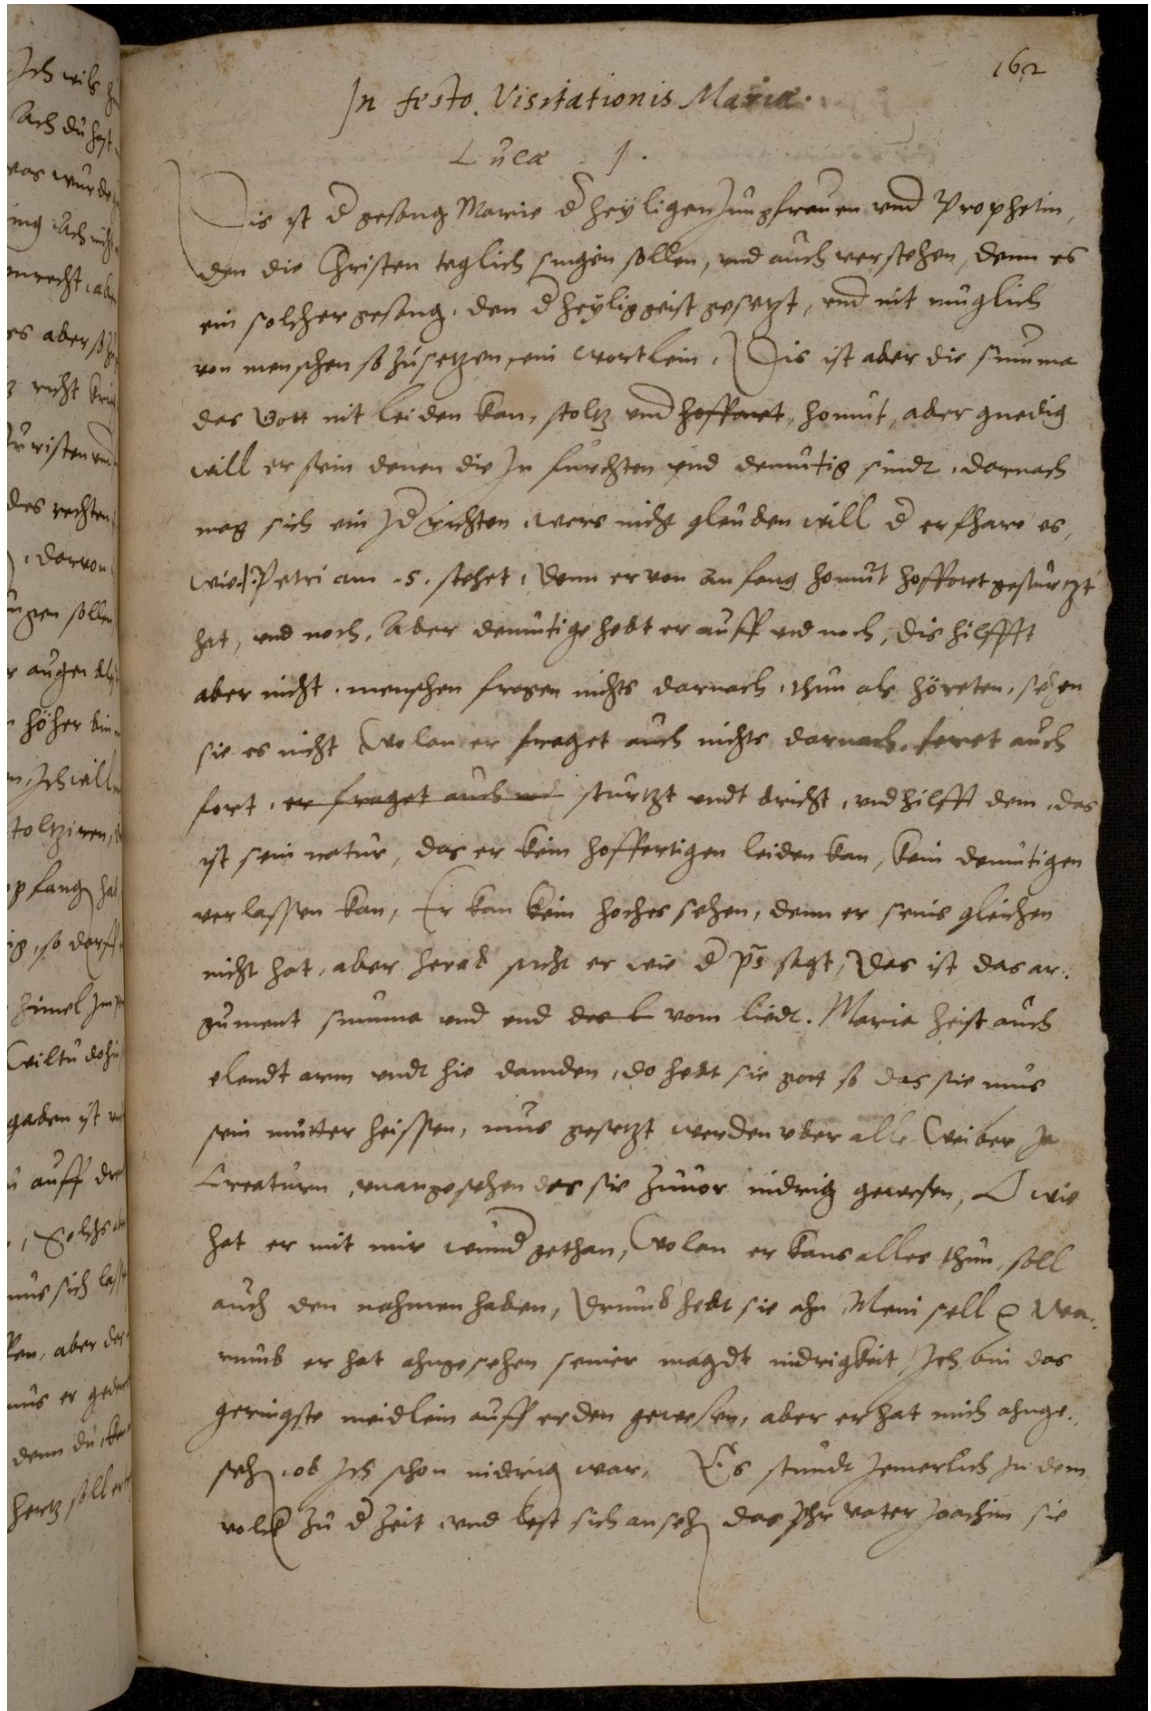 162
In festo Visitationis Mariæ.
Lucæ 1.
Dis ist d gesang Marie d heyligen Jungfrauen vnd Prophetin,
den die Christen teglich singen sollen, vnd auch verstehen, denn es
ein solcher gesang, den d heylig geist gesetzt, vnd nit muglich
von menschen so zusetzen, ein wortlein. Dis ist aber die summa
das Gott nit leiden kan, stoltz vnd hoffaret, homut, aber gnedig
will er sein denen die In furchten vnd demutig sindt, darnach
mag sich ein Jd richten, wers nicht gleuben will d erfhare es,
wie 1. Petri am .5. stehet, denn er von anfang homut hoffaret gesturtzt
hat, vnd noch, Aber demutige hebt er auff vnd noch, dis hilffft
aber nicht, menschen fragen nichts darnach, thun als höreten, sehen
sie es nicht Wolan er fraget auch nichts darnach, feret auch
fort, er fraget auch nich sturtzt vndt bricht, vnd hilfft dem, das
ist sein natur, das er kein hoffertigen leiden kan, kein demutigen
verlassen kan, Er kan kein hoches sehen, denn er seins gleichen
nicht hat, aber herab sicht er wie d ps sagt, Das ist das ar:
gument summa vnd end des l vom liedt. Maria heist auch
elendt arm vndt hie daniden, do hebt sie gott so das sie mus
sein mutter heissen, mus gesetzt werden vber alle Weiber Ja
Creaturn, vnangesehen das sie zuuor nidrig gewesen, O wie
hat er mit mir wund gethan, Wolan er kans alles thun, soll
auch den nahmen haben, Drumb hebt sie ahn Mein sell ꝛc War:
rumb er hat ahngesehen seiner magdt nidrigkeit Ich bin das
geringste meidlein auff erden gewesen, aber er hat mich ahnge:
sehen, ob Ich schon nidrig war, Es stundt Jemerlich In dem
volck zu d zeit, vnd lest sich ansehen das Ihr vater Joachim sie